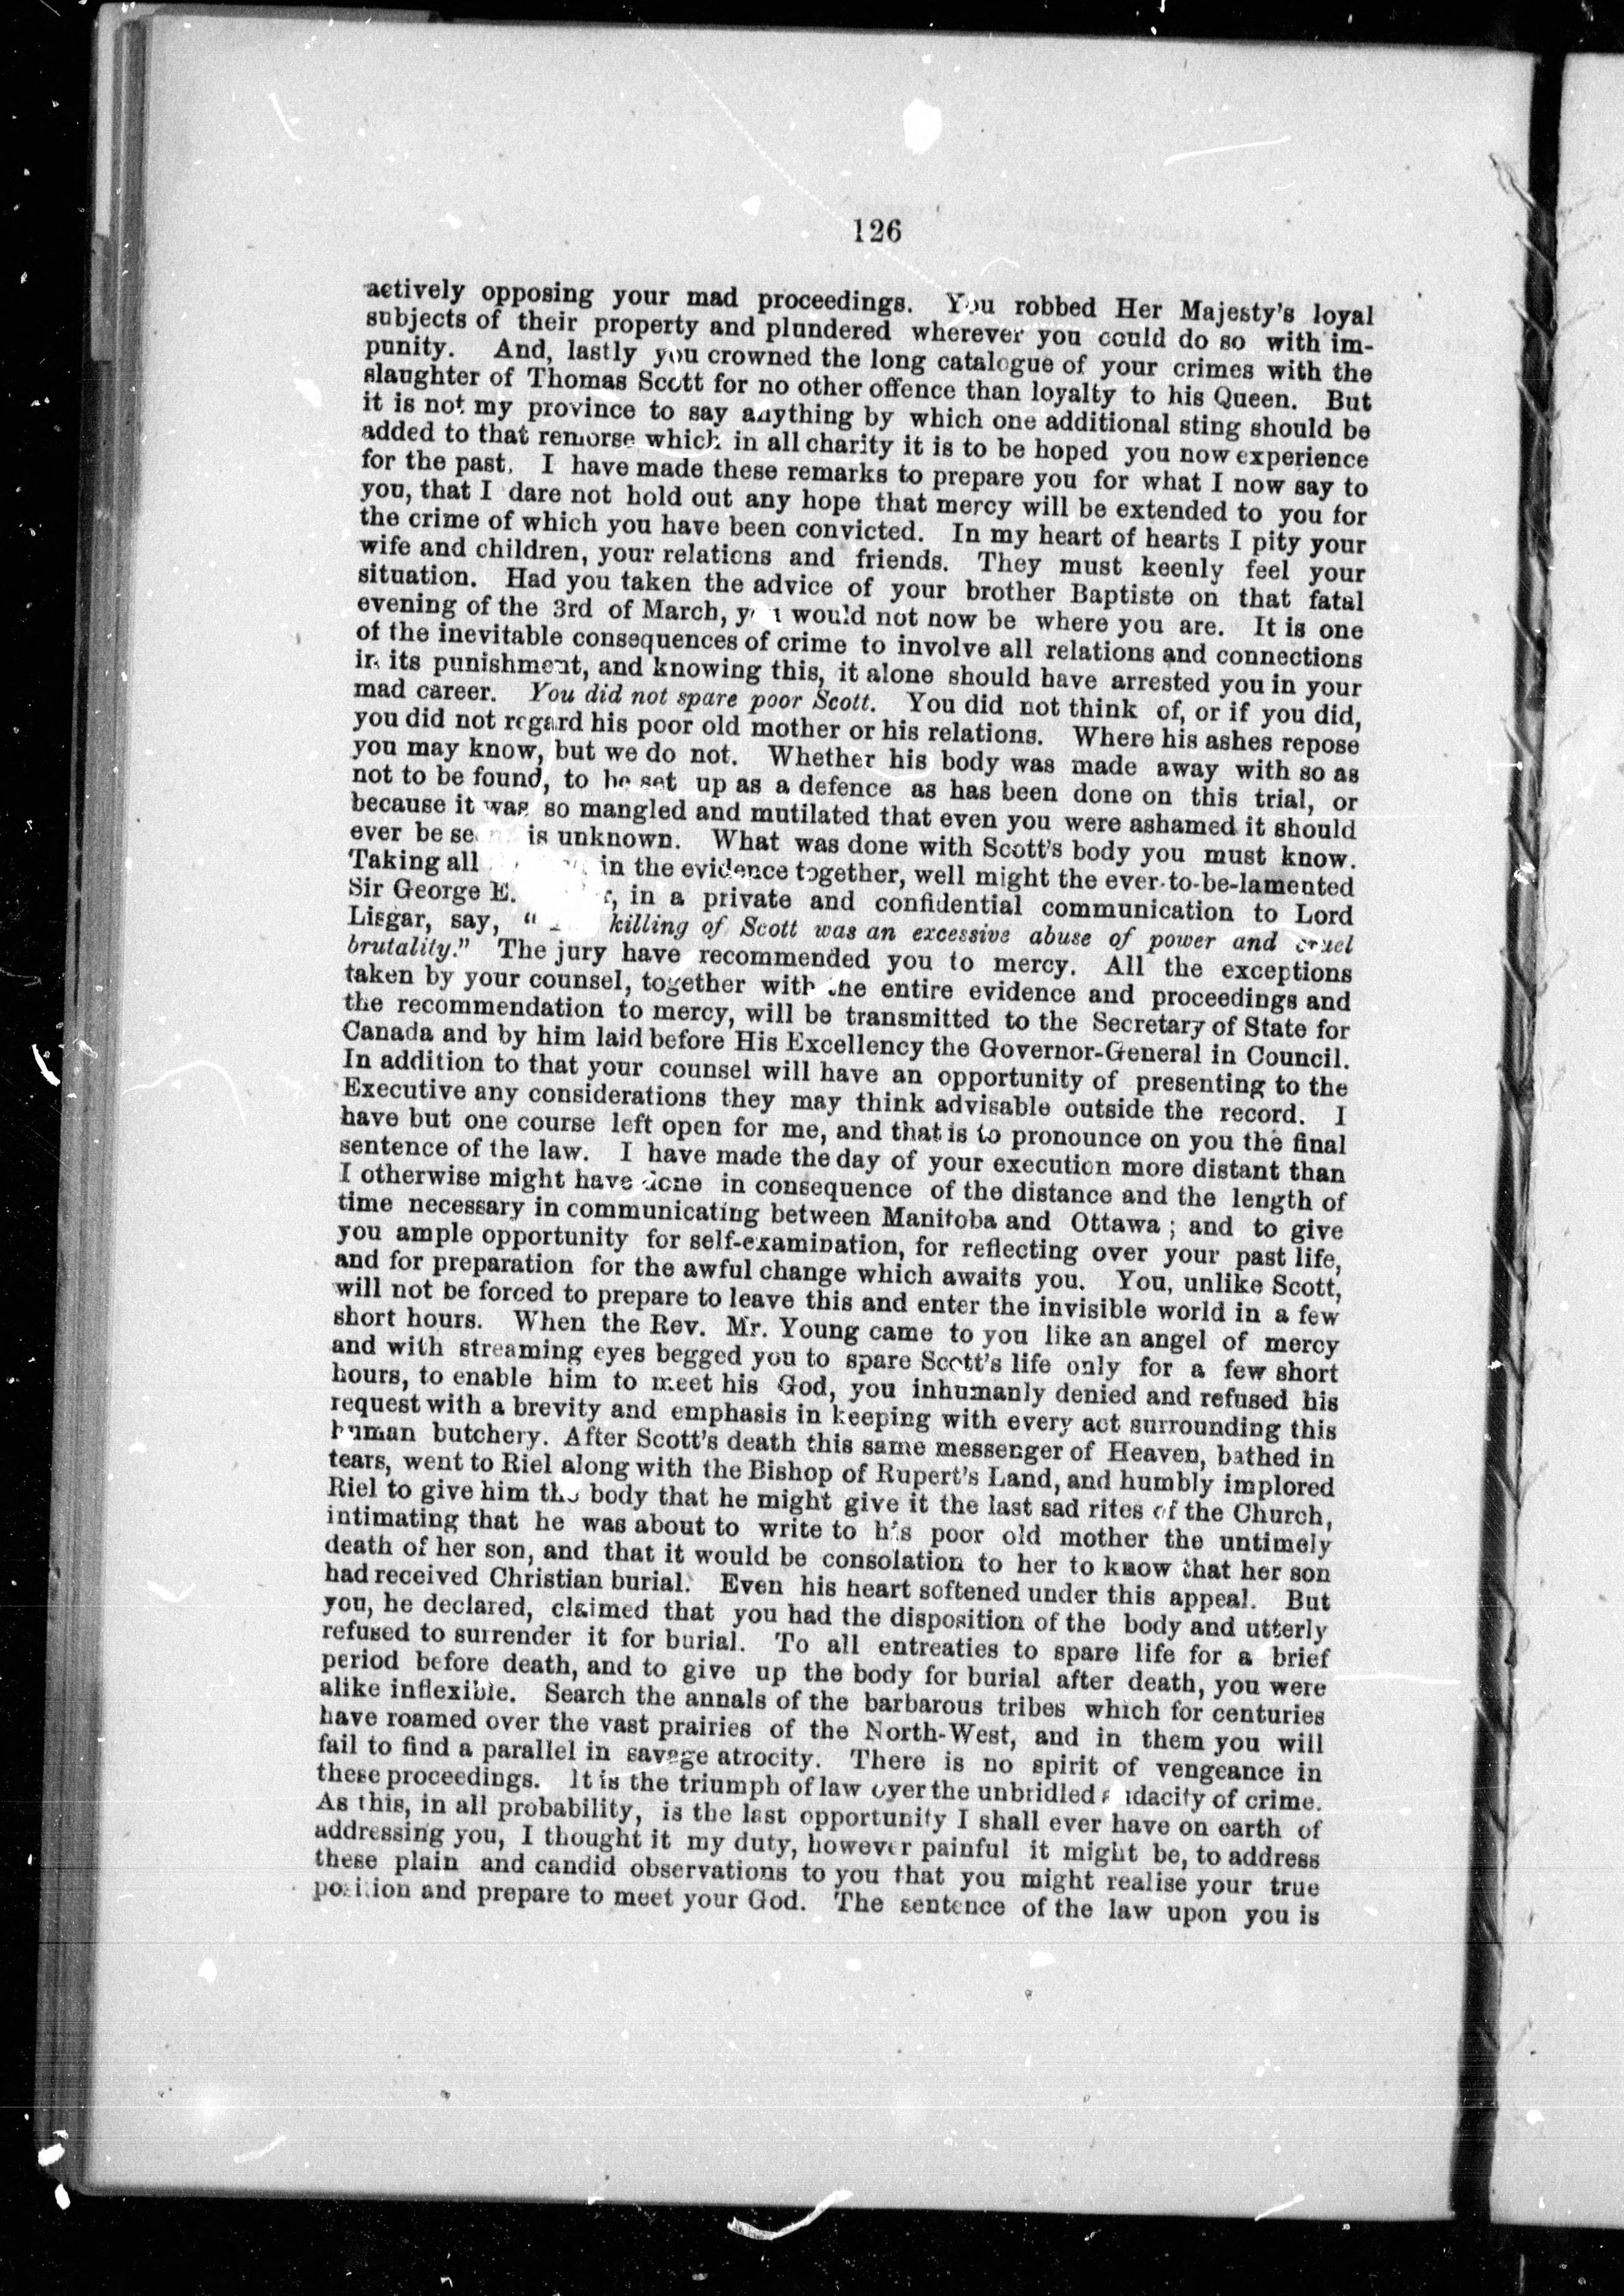 126
actively opposing your mad proceedings. You robbed Her Majesty's loyal
subjects of their property and plundered wherever you could do so with im-
punity. And, lastly you crowned the long catalogue of your crimes with the
slaughter of Thomas Scott for no other offence than loyalty to his Queen. But
it is not my province to say anything by which one additional sting should be
added to that remorse which in all charity it is to be hoped you now experience
for the past. I have made these remarks to prepare you for what I now say to
you, that I dare not hold out any hope that mercy will be extended to you for
the crime of which you have been convicted. In my heart of hearts I pity your
wife and children, your relations and friends. They must keenly feel your
situation. Had you taken the advice of your brother Baptiste on that fatal
evening of the 3rd of March, you would not now be where you are. It is one
of the inevitable consequences of crime to involve all relations and connections
in its punishment, and knowing this, it alone should have arrested you in your
mad career. You did not spare poor Scott. You did not think of, or if you did,
you did not regard his poor old mother or his relations. Where his ashes repose
you may know, but we do not. Whether his body was made away with so as
not to be found, to be set up as a defence as has been done on this trial, or
because it was so mangled and mutilated that even you were ashamed it should
ever be seen is unknown. What was done with Scott's body you must know.
Taking all in the evidence together, well might the ever-to-be-lamented
Sir George E. in a private and confidential communication to Lord
Lisgar, say, " killing of Scott was an excessive abuse of power and cruel
brutality." The jury have recommended you to mercy. All the exceptions
taken by your counsel, together with the entire evidence and proceedings and
the recommendation to mercy, will be transmitted to the Secretary of State for
Canada and by him laid before His Excellency the Governor-General in Council.
In addition to that your counsel will have an opportunity of presenting to the
Executive any considerations they may think advisable outside the record. I
have but one course left open for me, and that is to pronounce on you the final
sentence of the law. I have made the day of your execution more distant than
I otherwise might have done in consequence of the distance and the length of
time necessary in communicating between Manitoba and Ottawa; and to give
you ample opportunity for self-examination, for reflecting over your past life,
and for preparation for the awful change which awaits you. You, unlike Scott,
will not be forced to prepare to leave this and enter the invisible world in a few
short hours. When the Rev. Mr. Young came to you like an angel of mercy
and with streaming eyes begged you to spare Scott's life only for a few short
hours, to enable him to meet his God, you inhumanly denied and refused his
request with a brevity and emphasis in keeping with every act surrounding this
human butchery. After Scott's death this same messenger of Heaven, bathed in
tears, went to Riel along with the Bishop of Rupert's Land, and humbly implored
Riel to give him the body that he might give it the last sad rites of the Church,
intimating that he was about to write to his poor old mother the untimely
death of her son, and that it would be consolation to her to know that her son
had received Christian burial. Even his heart softened under this appeal. But
you, he declared, claimed that you had the disposition of the body and utterly
refused to surrender it for burial. To all entreaties to spare life for a brief
period before death, and to give up the body for burial after death, you were
alike inflexible. Search the annals of the barbarous tribes which for centuries
have roamed over the vast prairies of the North-West, and in them you will
fail to find a parallel in savage atrocity. There is no spirit of vengeance in
these proceedings. It is the triumph of law over the unbridled audacity of crime.
As this, in all probability, is the last opportunity I shall ever have on earth of
addressing you, I thought it my duty, however painful it might be, to address
these plain and candid observations to you that you might realise your true
position and prepare to meet your God. The sentence of the law upon you is